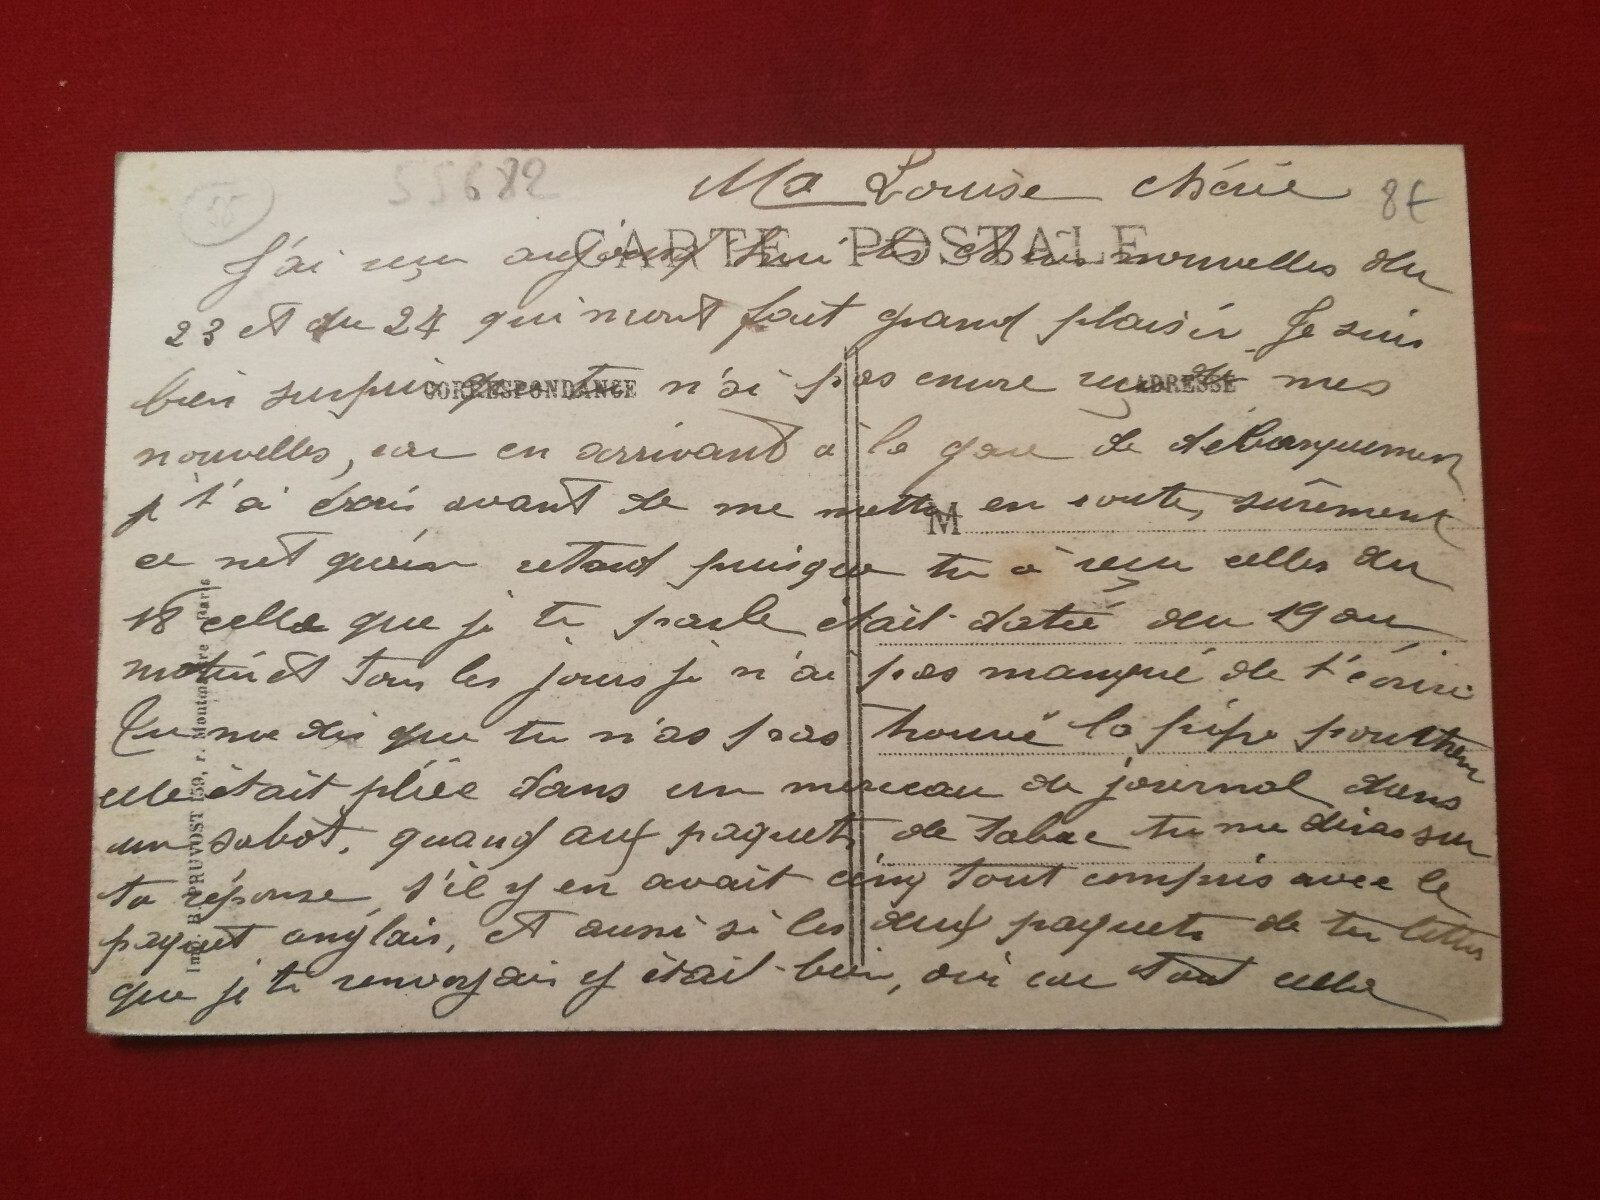 55682
Ma Louise chérie
8€
CARTE POSTALE
J'ai reçu aujourd'hui tes chères nouvelles du
23 et du 24 qui mont fait grand plaisir Je suis
bien surpris que tu n'ai pas encore reçu de mes
CORRESPONDANCE
ADRESSE
nouvelles, car en arrivant à la gare de débarquement
je t'ai écris avant de me mettre en route, sûrement
M
ce net qu'un retard puisque tu à reçu celles du
18 celle que je te parle était daté du 19 au
matin et tous les jours je n'ai pas manqué de t'écrire
Tu me dis que tu n'as pas trouvé la pipe pourtant
elle était pliée dans un morceau de journal dans
un sabot, quand aux paquets de tabac tu me diras sur
ta réponse, s'il y en avait cinq tout compris avec le
paquet anglais, et aussi si les deux paquets de tes lettres
que je te renvoyais y était bien, oui car tout cella
Imp. B. PRUVOST 159, r. Montmartre Paris